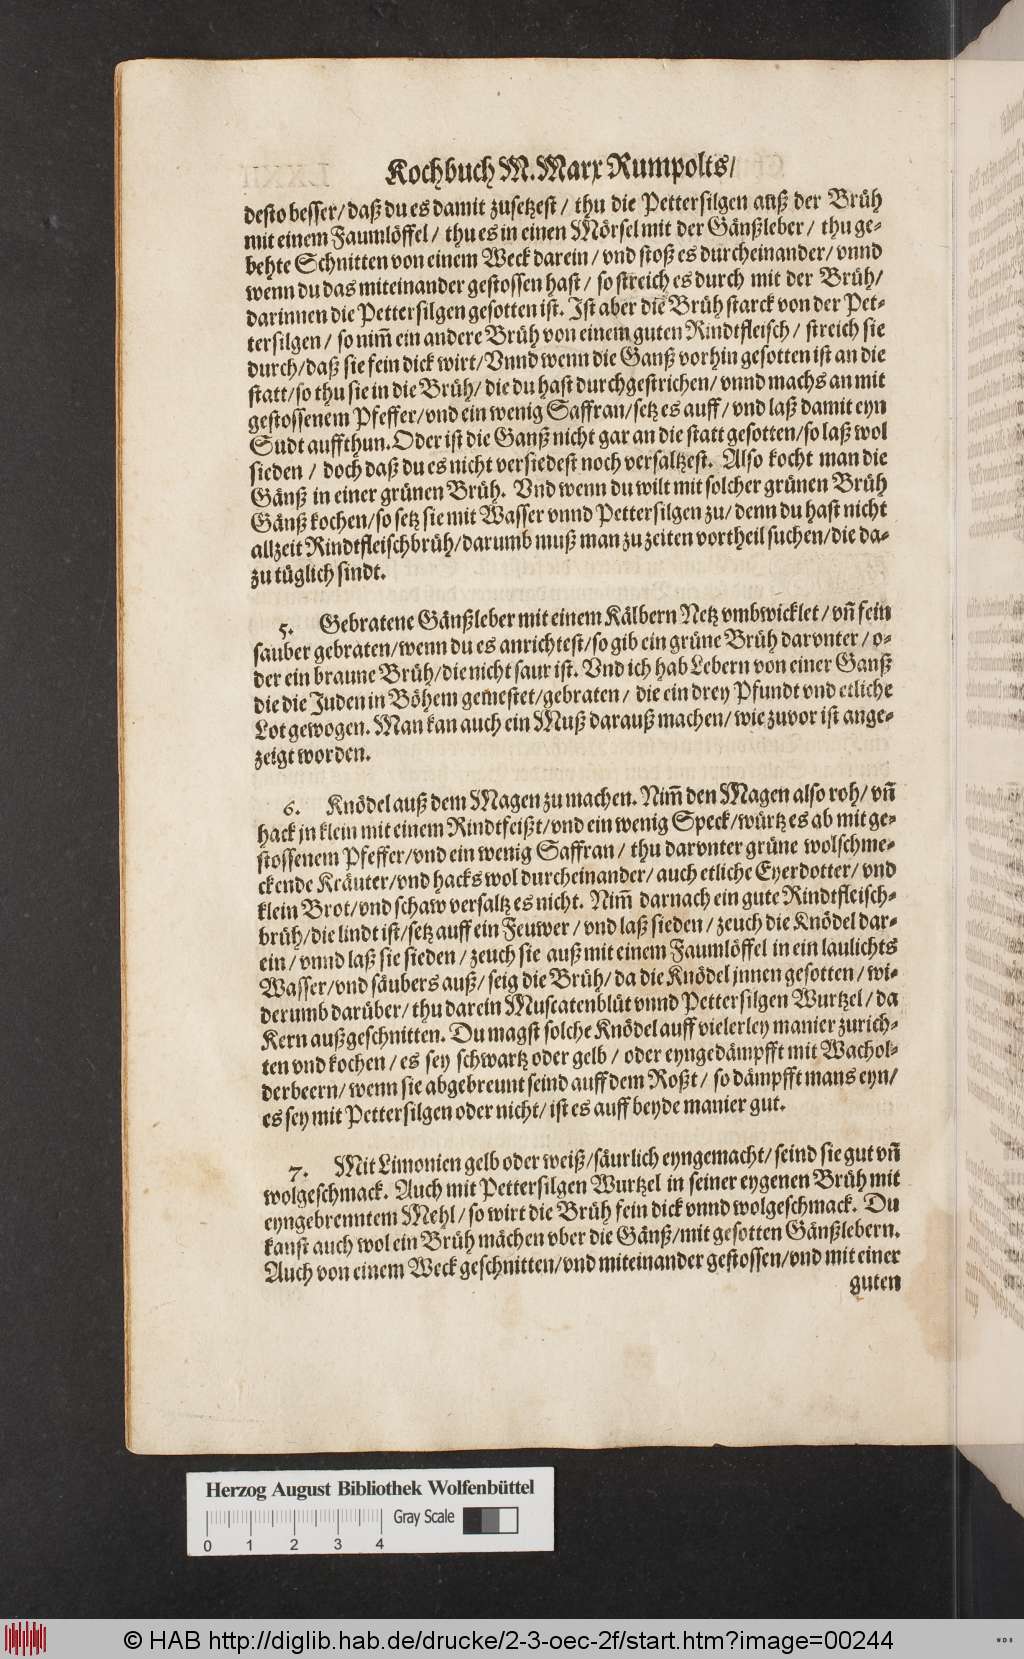 Kochbuch M. Marx Rumpolts/
desto besser/ daß du es damit zusetzest/ thu die Pettersilgen auß der Brüh
mit einem Faumlöffel/ thu es in einen Mörsel mit der Gänßleber/ thu ge-
behte Schnitten von einem Weck darein/ vnd stoß es durcheinander/ vnnd
wenn du das miteinander gestossen hast/ so streich es durch mit der Brüh/
darinnen die Pettersilgen gesotten ist. Ist aber die Brüh starck von der Pet-
tersilgen/ so nim̃ ein andere Brüh von einem guten Rindtfleisch/ streich sie
durch/ daß sie fein dick wirt/ Vnnd wenn die Ganß vorhin gesotten ist an die
statt/ so thu sie in die Brüh/ die du hast durchgestrichen/ vnnd machs an mit
gestossenem Pfeffer/ vnd ein wenig Saffran/ setz es auff/ vnd laß damit eyn
Sudt auffthun. Oder ist die Ganß nicht gar an die statt gesotten/ so laß wol
sieden/ doch daß du es nicht versiedest noch versaltzest. Also kocht man die
Gänß in einer grünen Brüh. Vnd wenn du wilt mit solcher grünen Brüh
Gänß kochen/ so setz sie mit Wasser vnnd Pettersilgen zu/ denn du hast nicht
allzeit Rindtfleischbrüh/ darumb muß man zu zeiten vortheil suchen/ die da-
zu tüglich sindt.
5. Gebratene Gänßleber mit einem Kälbern Netz vmbwicklet/ vñ fein
sauber gebraten/ wenn du es anrichtest/ so gib ein grüne Brüh darvnter/ o-
der ein braune Brüh/ die nicht saur ist. Vnd ich hab Lebern von einer Ganß
die die Juden in Böhem gemestet/ gebraten/ die ein drey Pfundt vnd etliche
Lot gewogen. Man kan auch ein Muß darauß machen/ wie zuvor ist ange-
zeigt worden.
6. Knödel auß dem Magen zu machen. Nim̃ den Magen also roh/ vñ
hack jn klein mit einem Rindtfeißt/ vnd ein wenig Speck/ würtz es ab mit ge-
stossenem Pfeffer/ vnd ein wenig Saffran/ thu darvnter grüne wolschme-
ckende Kräuter/ vnd hacks wol durcheinander/ auch etliche Eyerdotter/ vnd
klein Brot/ vnd schaw versaltz es nicht. Nim̃ darnach ein gute Rindtfleisch-
brüh/ die lindt ist/ setz auff ein Feuwer/ vnd laß sieden/ zeuch die Knödel dar-
ein/ vnnd laß sie sieden/ zeuch sie auß mit einem Faumlöffel in ein laulichts
Wasser/ vnd säubers auß/ seig die Brüh/ da die Knödel jnnen gesotten/ wi-
derumb darüber/ thu darein Muscatenblüt vnnd Pettersilgen Wurtzel/ da
Kern außgeschnitten. Du magst solche Knödel auff vielerley manier zurich-
ten vnd kochen/ es sey schwartz oder gelb/ oder eyngedämpfft mit Wachol-
derbeern/ wenn sie abgebreunt seind auff dem Roßt/ so dämpfft mans eyn/
es sey mit Pettersilgen oder nicht/ ist es auff beyde manier gut.
7. Mit Limonien gelb oder weiß/ säurlich eyngemacht/ seind sie gut vñ
wolgeschmack. Auch mit Pettersilgen Wurtzel in seiner eygenen Brüh mit
eyngebrenntem Mehl/ so wirt die Brüh fein dick vnnd wolgeschmack. Du
kanst auch wol ein Brüh mächen vber die Gänß/ mit gesotten Gänßlebern.
Auch von einem Weck geschnitten/ vnd miteinander gestossen/ vnd mit einer
guten
Herzog August Bibliothek Wolfenbüttel
Gray Scale
0 1 2 3 4
© HAB http://diglib.hab.de/drucke/2-3-oec-2f/start.htm?image=00244